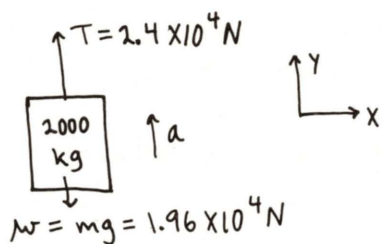 T = 2.4 X10⁴ N
Y
X
2000
kg
a
w = mg = 1.96 X10⁴ N